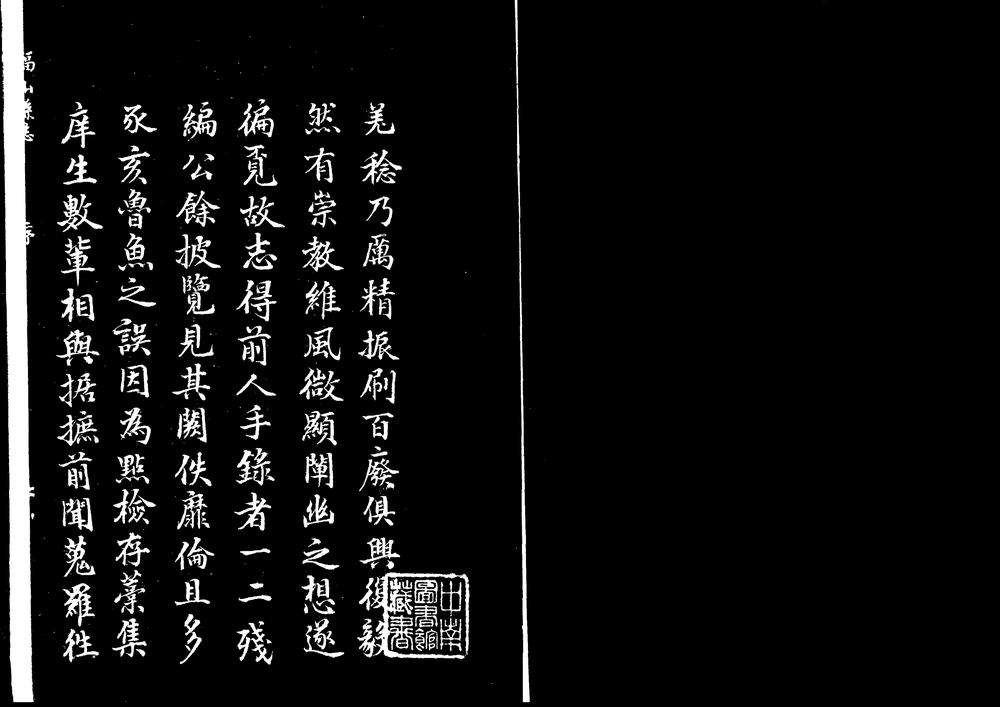 羌稔乃厲精振刷百廢俱興復毅
然有崇教維風微顯闡幽之想遂
徧覓故志得前人手錄者一二殘
編公餘披覽見其闕佚靡倫且多
豕亥魯魚之誤因為點檢存藁集
庠生數輩相與据摭前聞蒐羅徃
福山縣志
序
中南
圖書館
藏書